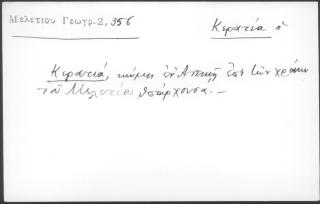 Μελετίου Γεωγρ. 2, 356
Κερατέα ἡ
Κερατιά, κώμη ἐν Ἀττικῇ ἐπὶ τῶν χρόνων
τοῦ Μελετίου ὑπάρχουσα. —